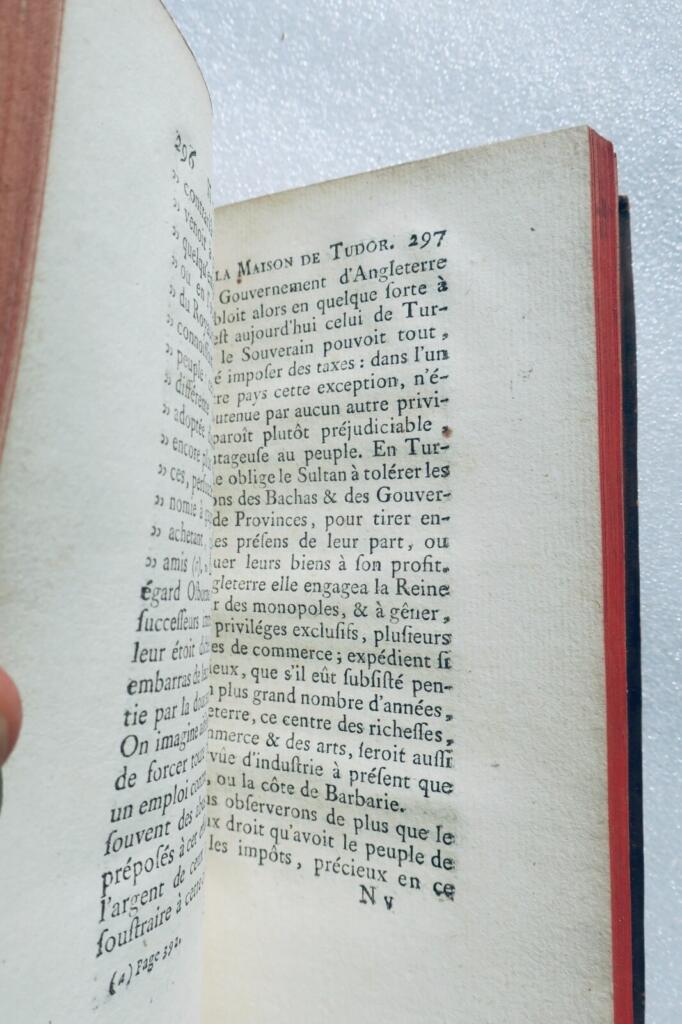 296
» contrai
» venoir
» quelqu'e
» ou en l'
» du Roya
» connoiss
» peuple
» différente
» adoptée
» encore pl
» ces, per
» nomie à
» achetant
» amis (a), »
égard
ſucceſſeurs
leur étoit
embarras de
tie par la
On imagine
de forcer
un emploi
ſouvent des
prépoſés à cet
l'argent de
ſouſtraire à
(a) Page 392.
LA MAISON DE TUDOR. 297
Gouvernement d'Angleterre
bloit alors en quelque ſorte à
eſt aujourd'hui celui de Tur-
le Souverain pouvoit tout,
é impoſer des taxes : dans l'un
re pays cette exception, n'é-
utenue par aucun autre privi-
paroît plutôt préjudiciable,
tageuſe au peuple. En Tur-
e oblige le Sultan à tolérer les
ons des Bachas & des Gouver-
de Provinces, pour tirer en-
es préſens de leur part, ou
uer leurs biens à ſon profit.
gleterre elle engagea la Reine
r des monopoles, & à gêner,
priviléges excluſifs, pluſieurs
es de commerce ; expédient ſi
ieux, que s'il eût ſubſiſté pen-
n plus grand nombre d'années,
eterre, ce centre des richeſſes,
mmerce & des arts, ſeroit auſſi
vûe d'induſtrie à préſent que
, ou la côte de Barbarie.
s obſerverons de plus que le
ux droit qu'avoit le peuple de
les impôts, précieux en ce
N v